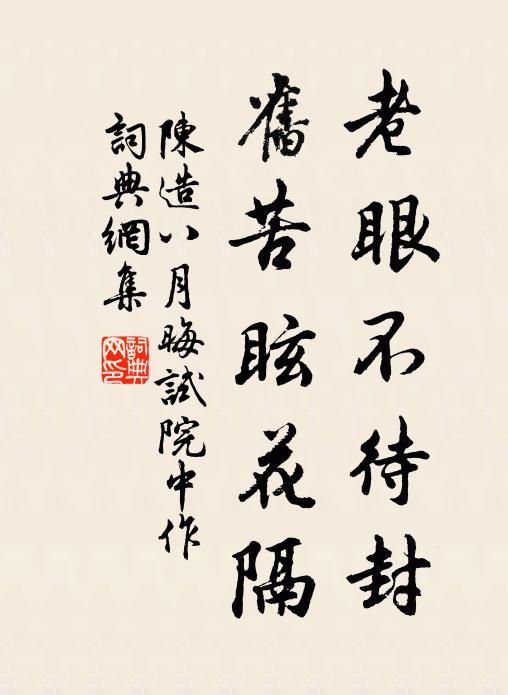 老眼不待封
舊苦眩花隔
陳造八月晦試院中作
詞典網集
詞典網印